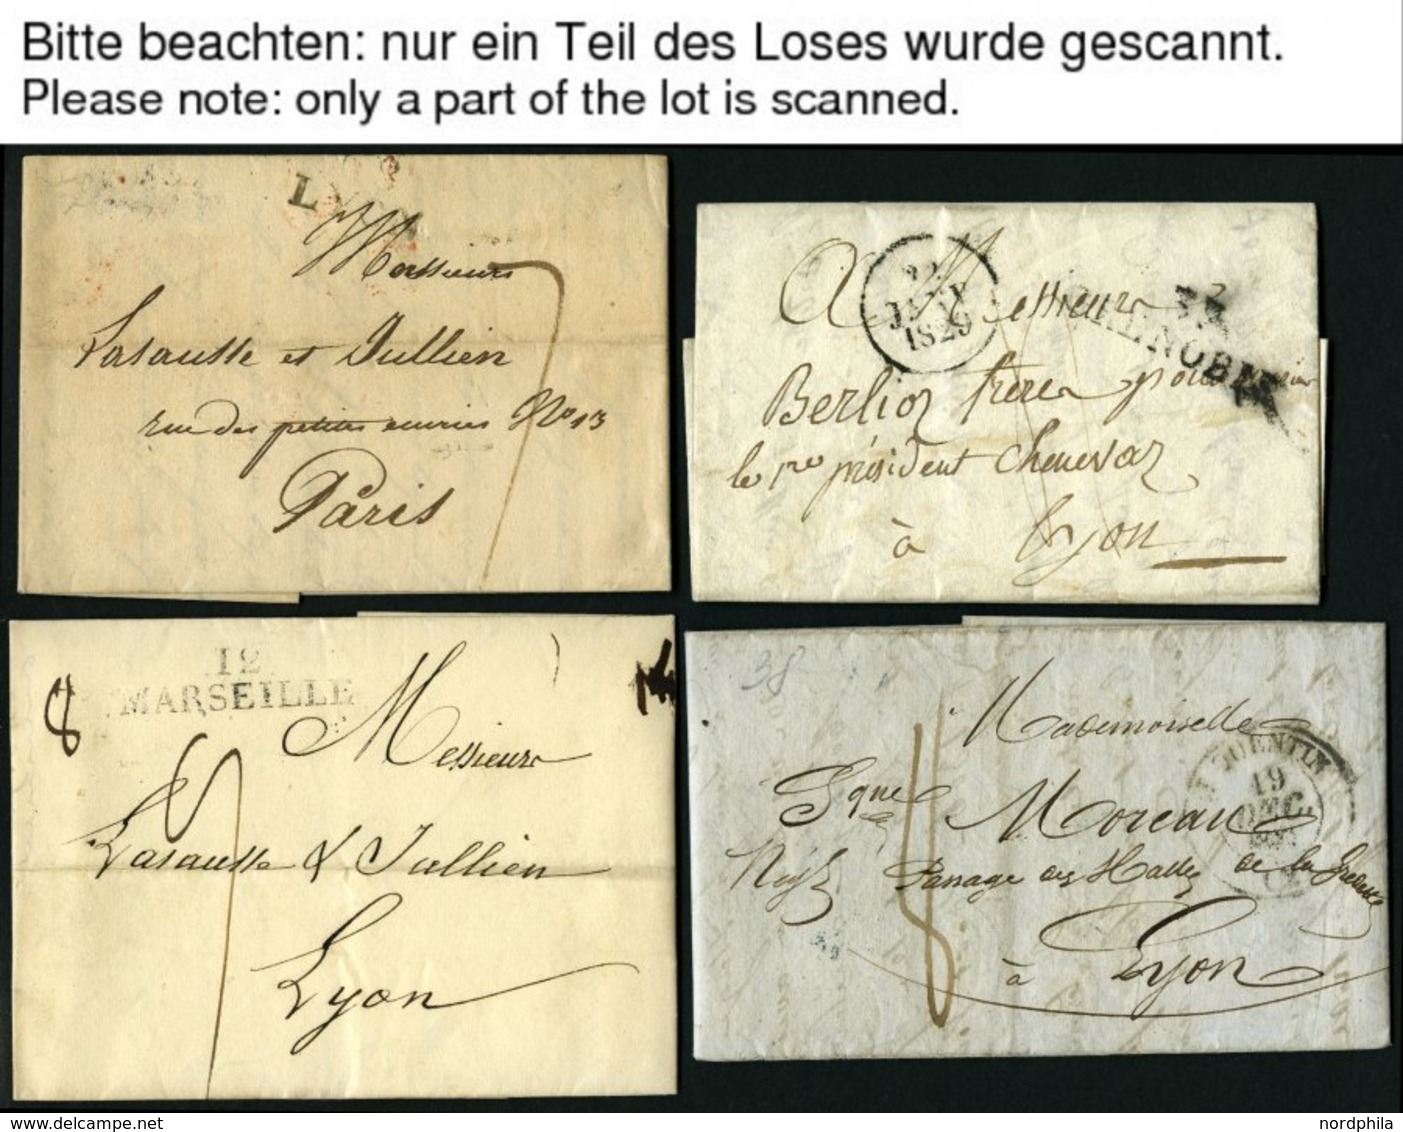 Bitte beachten: nur ein Teil des Loses wurde gescannt.
Please note: only a part of the lot is scanned.
Messieurs
Lasausse et Jullien
rue des petites écuries No 13
Paris
22
JANV
1829
GRENOBLE
A Messieurs
Berlioz frères pour
le 1er président Chenevaz
à Lyon
12
MARSEILLE
8
Messieurs
Lasausse & Jullien
Lyon
38
Mademoiselle
QUENTIN
19
DEC.
Moreau
Passage des Halles de la Grenette
à Lyon
www.delcampe.net
nordphila